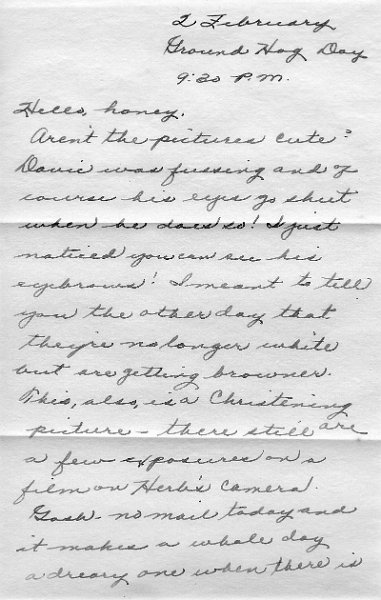 2 February
Ground Hog Day
9:30 P.M.
Hello, honey,
Aren't the pictures cute?
Davie was fussing and of
course his eyes go shut
when he does so! I just
noticed you can see his
eyebrows! I meant to tell
you the other day that
they're no longer white
but are getting browner.
This, also, is a Christening
picture - there still are
a few exposures on a
film on Herb's camera.
Gosh - no mail today and
it makes a whole day
a dreary one when there is